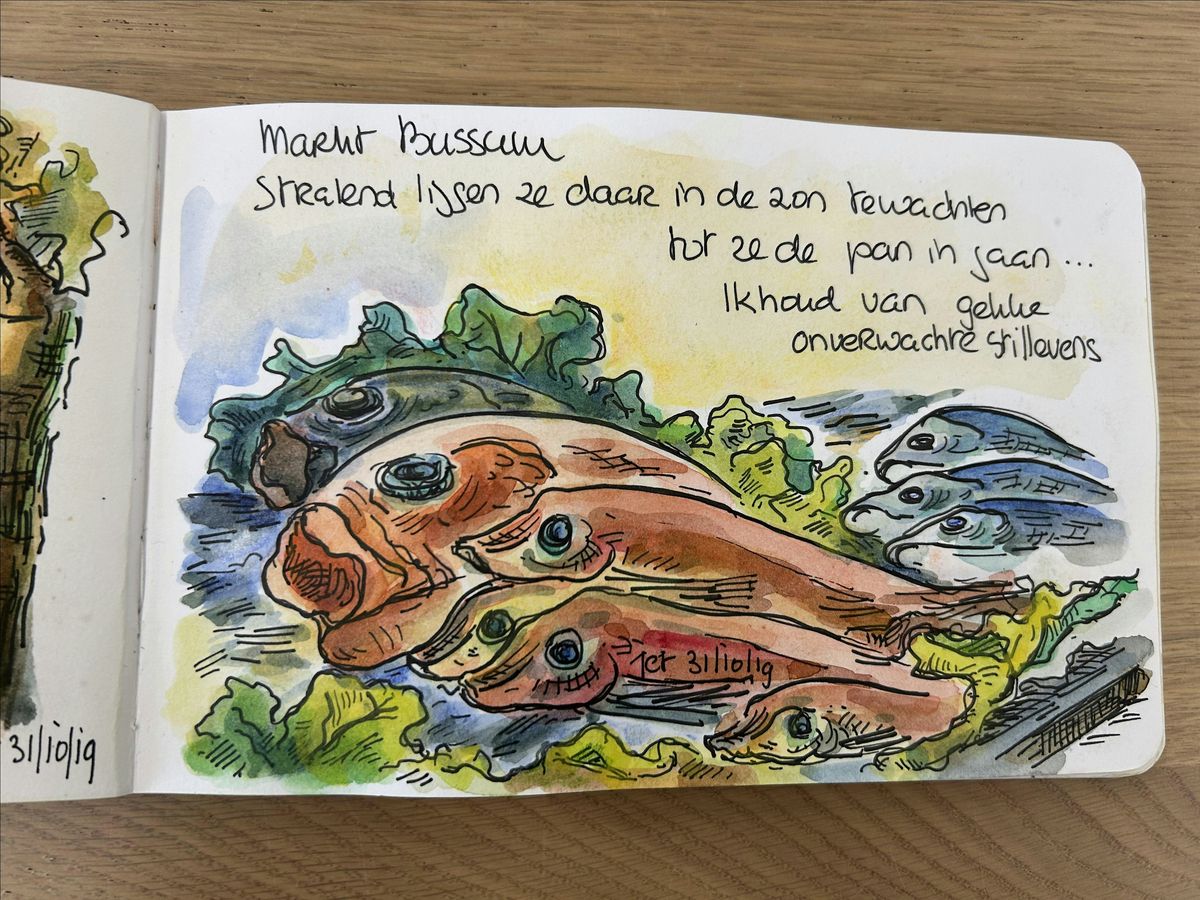 Markt Bussum
Stralend liggen ze daar in de zon te wachten
tot ze de pan in gaan...
Ik houd van gekke
onverwachte stillevens
Jet 31/10/19
31/10/19